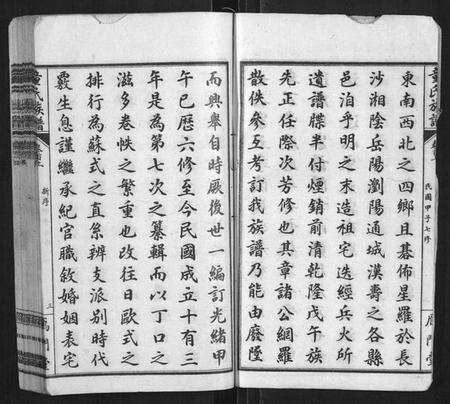 東南西北之四鄉且碁佈星羅於長
沙湘陰岳陽瀏陽通城漢壽之各縣
邑洎乎明之末造祖宅迭經兵火所
遺譜牒半付煙銷前清乾隆戊午族
先正任際次芳修也其章諸公網羅
散佚參互考訂我族譜乃能由廢墜
而興舉自時厥後世一編訂光緒甲
午已歷六修至今民國成立十有三
年是為第七次之纂輯而以丁口之
滋多卷帙之繁重也改往日歐式之
排行為蘇式之直系辨支派別時代
覈生息謹繼承紀官職敘婚姻表宅
民國甲子七修
雁門堂
族譜
新序
三